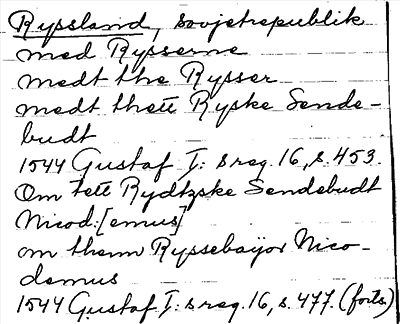 Ryssland, Sovjetrepublik
med Rysserne
medt the Rysser
medt thett Ryske Sende-
budt
1544 Gustaf I: s reg. 16, s. 453.
Om tett Rydtzske Sendebudt
Nicod:[emus]
om thenn Ryssebaÿor Nico-
demus
1544 Gustaf I: s reg. 16, s. 477. (forts.)